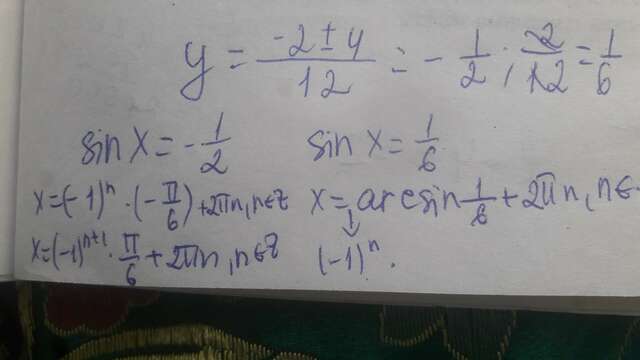 y = (-2 ± 4)/12 = -1/2 ; 2/12 = 1/6
sin x = -1/2 sin x = 1/6
x = (-1)^n · (-π/6) + 2πn, n∈Z x = arcsin 1/6 + 2πn, n∈
x = (-1)^{n+1} · π/6 + 2πn, n∈Z ↓ (-1)^n .